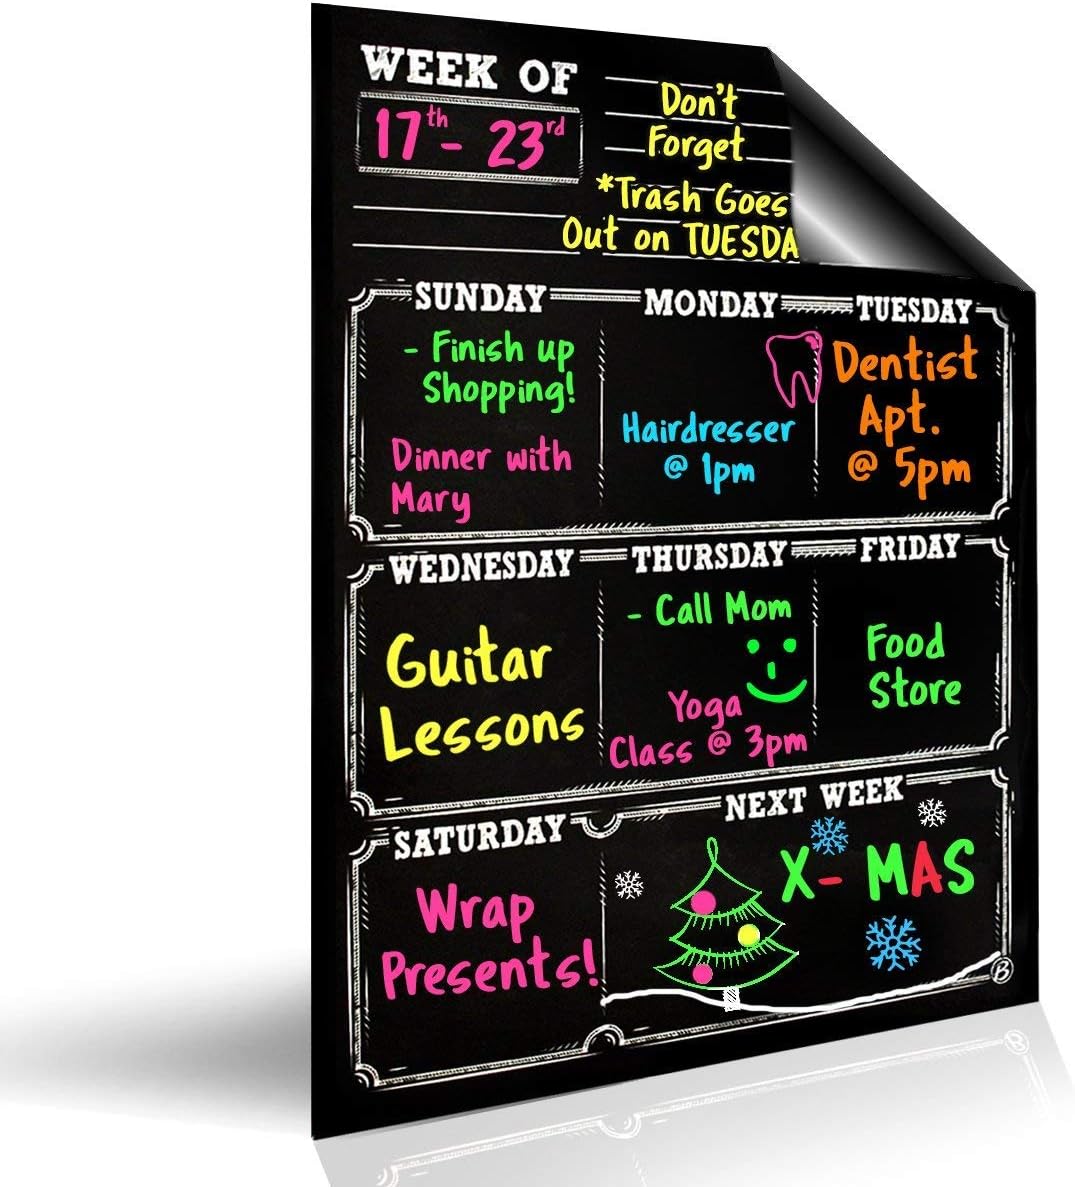 WEEK OF
17th- 23rd
Don't
Forget
*Trash Goes
Out on TUESDA
SUNDAY
- Finish up
Shopping!
Dinner with
Mary
MONDAY
Hairdresser
@ 1pm
TUESDAY
Dentist
Apt.
@ 5pm
WEDNESDAY
Guitar
Lessons
THURSDAY
- Call Mom
Yoga
Class @ 3pm
FRIDAY
Food
Store
SATURDAY
Wrap
Presents!
NEXT WEEK
X- MAS
B